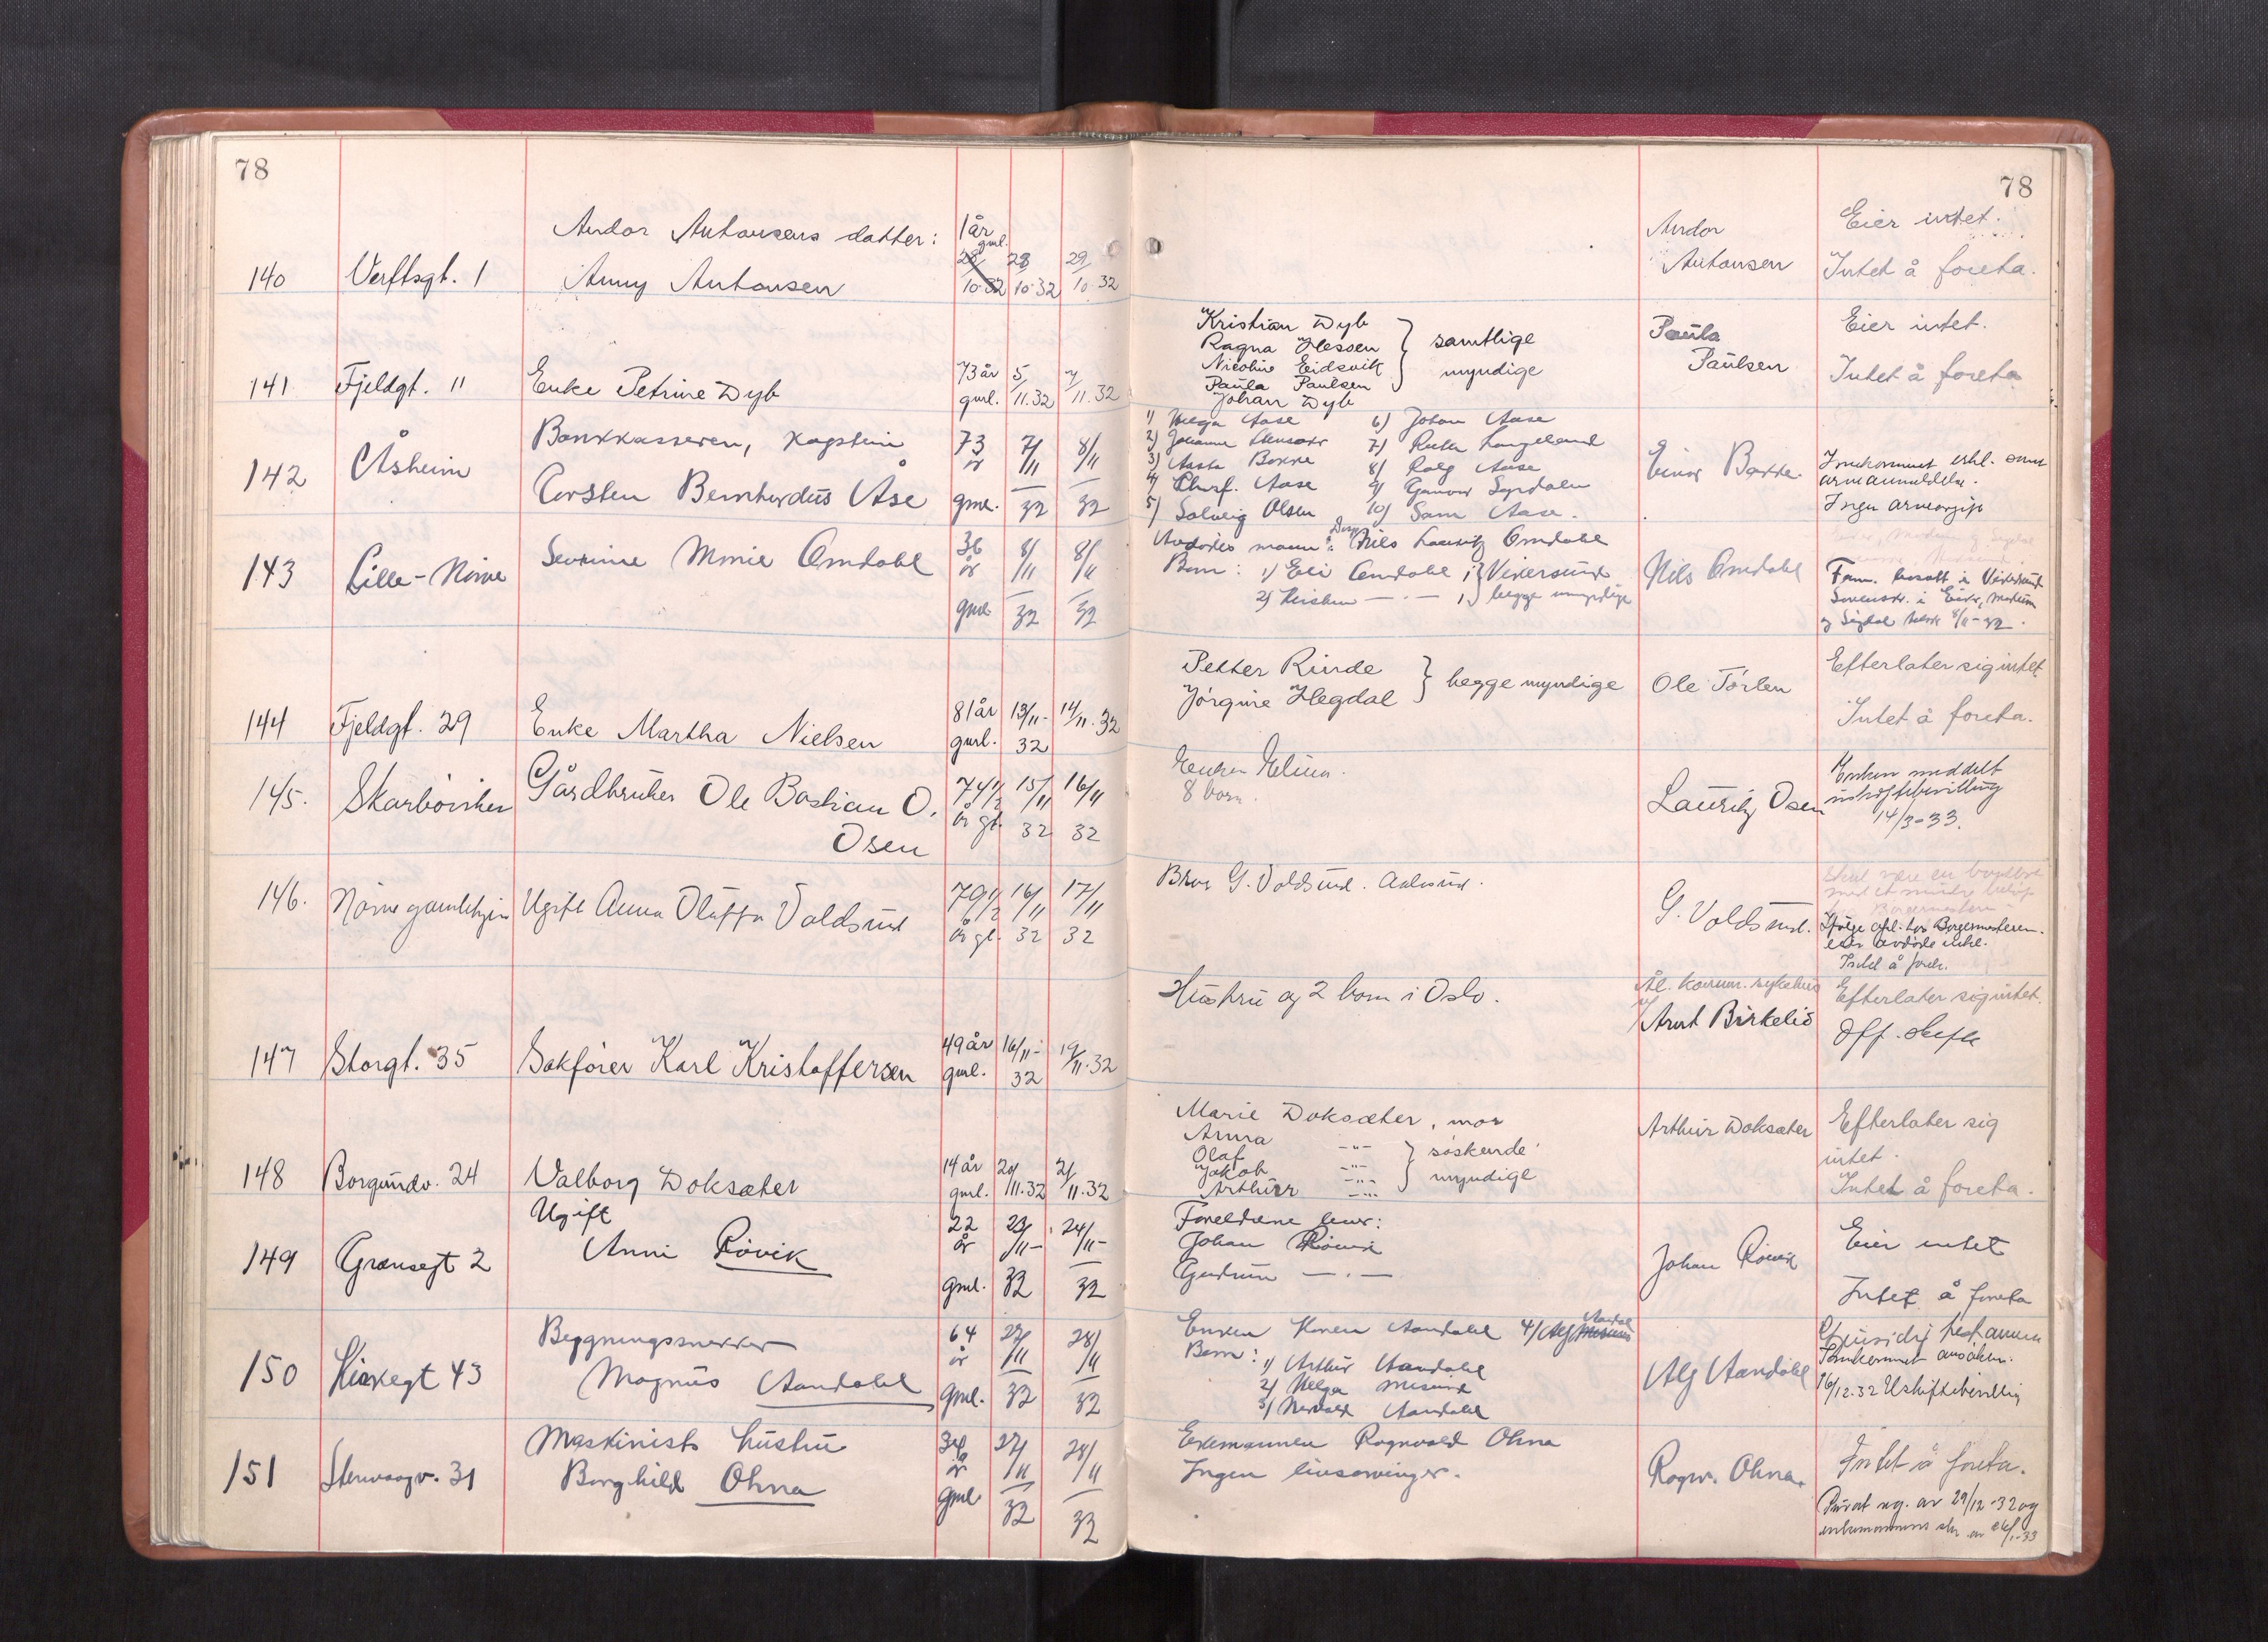 78
78
Andor Antonsens datter:
140 Verftsgt. 1 Anny Antonsen
1 år gml. 28/10.32 28/10.32 29/10.32
Andor Antonsen
Eier intet.
Intet å foreta.
141 Fjeldgt. 11 Enke Petrine Dyb
73 år gml. 5/11.32 7/11.32
Kristian Dyb
Ragna Hessen
Nicoline Eidsvik
Paula Paulsen
Johan Dyb
samtlige
myndige
Paula Paulsen
Eier intet.
Intet å foreta
142 Åsheim Bankkasserer,
Torsten Bernhardus Åse
73 år gml. 7/11 32 8/11 32
1) Helga Aase 6) Johan Aase
2) Johanne 7) Ruth Langeland
3) Aasta Bakke 8) Rolf Aase
4) Aase 9) Gunvor
5) Solveig Olsen 10) Aase.
Einar Bakke.
Innkommet erkl. samt
arveanmeldelse.
Ingen arveavgift
143 Lille-Nørve Severine Marie Omdahl
36 år gml. 8/11 32 8/11 32
Avdødes mann: Nils Lauritz Omdahl
Barn: 1) Eli Omdahl Vikersund
2) — . — begge umyndige
Nils Omdahl
Fam. bosatt i Vikersund
Sorenskr. i Eiker, Modum
og Sigdal 8/11-32.
144 Fjeldgt. 29 Enke Martha Nielsen
81 år gml. 13/11-32 14/11.32
Petter Rinde
Jørgine Hegdal
begge myndige
Ole Tørlen
Efterlater sig intet
Intet å foreta.
145. Skarbøviken Gårdbruker Ole Bastian O.
Osen
74 1/2 år gl. 15/11 32 16/11 32
Enken Elina.
8 barn.
Lauritz Osen
Enken meddelt
uskiftebevilling
14/3-33.
146. Nørve gamlehjem Ugift Anna Olufta Voldsund
79 1/2 år gl. 16/11 32 17/11 32
Bror G. Voldsund. Aalesund.
G. Voldsund.
Ifølge opl. hos Borgermesteren.
eier avdøde intet.
Intet å foreta.
147 Storgt. 35 Sakfører Karl Kristoffersen
49 år gml. 16/11-32 19/11.32
Hustru og 2 barn i Oslo.
Ål. komm. sykehus
v/ Arnt Birkelid
Efterlater sig intet.
Off. skifte
148 Borgundv. 24 Valborg Doksæter
14 år gml. 20/11.32 21/11.32
Marie Doksæter, mor
Anna —"—
Olaf —"—
Jakob —"—
Arthur —"—
søskende
myndige
Arthur Doksæter
Efterlater sig
intet.
Intet å foreta.
149 Grensegt 2 Ugift
Anni Røvik
22 år gml. 23/11-32 24/11-32
Foreldrene lever:
Johan Røvik
Gudrun — . —
Johan Røvik
Eier intet
Intet å foreta
150 Kirkegt 43 Bygningssnekker
Magnus Aandahl
64 år gml. 27/11 32 28/11 32
Enken Karen Aandahl 4/ Alf Aandahl
Barn: 1) Arthur Aandahl
2) Helga Misund
3) Aandahl
Alf Aandahl
Innkommet ansøkn.
16/12.32 Uskiftebevilling
151 Stenvaagv. 31 Maskinists hustru
Borghild Ohna
34 år gml. 27/11 32 28/11 32
Ektemannen Ragnvald Ohna
Ingen livsarvinger.
Ragnv. Ohna.
Intet å foreta.
Privat reg. av 29/12-32 og
enkemannens skr. av 24/1-33